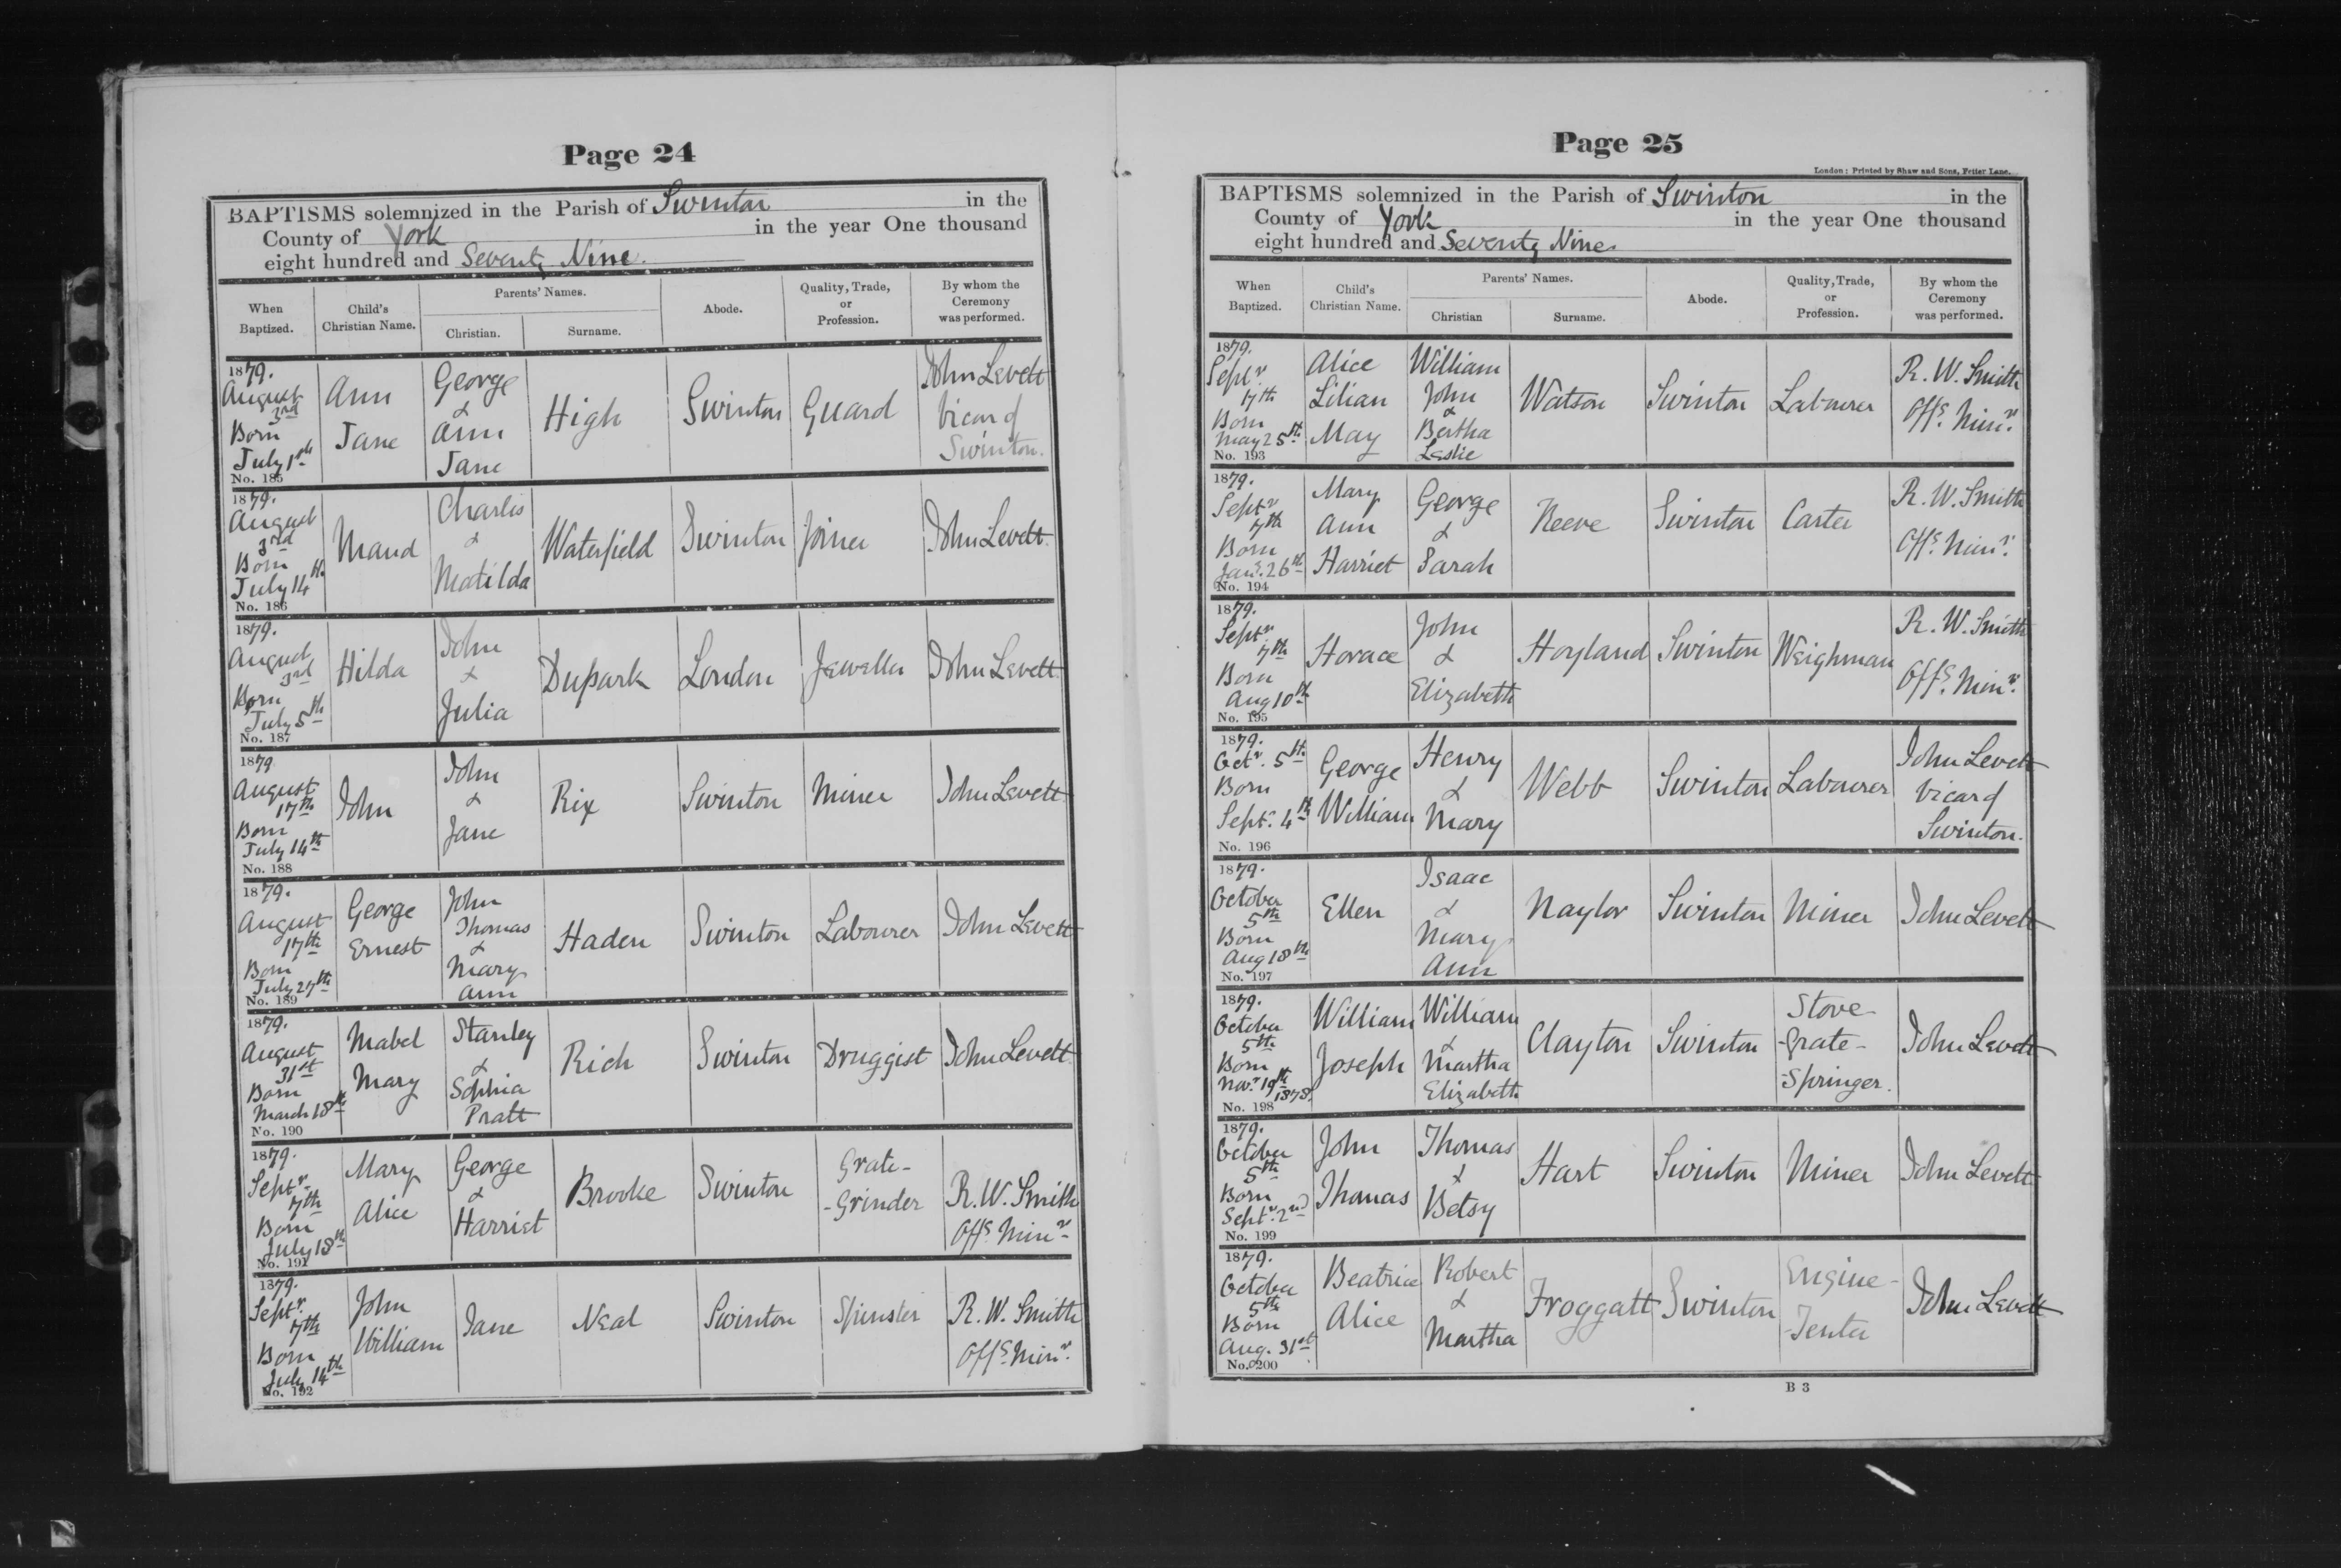 Page 24
BAPTISMS solemnized in the Parish of Swinton in the
County of York in the year One thousand
eight hundred and Seventy Nine.
When Baptized. Child's Christian Name. Parents' Names. Christian. Surname. Abode. Quality, Trade, or Profession. By whom the Ceremony was performed.
1879. August 3rd Born July 1st No. 185 Ann Jane George & Ann Jane High Swinton Guard John Levett Vicar of Swinton.
1879. August 3rd Born July 14th No. 186 Maud Charles & Matilda Waterfield Swinton Joiner John Levett.
1879. August 3rd Born July 5th No. 187 Hilda John & Julia Dupark London Jeweller John Levett.
1879 August 17th Born July 14th No. 188 John John & Jane Rix Swinton Miner John Levett.
1879. August 17th Born July 27th No. 189 George Ernest John Thomas & Mary Ann Haden Swinton Labourer John Levett
1879. August 31st Born March 18th No. 190 Mabel Mary Stanley & Sophia Pratt Rich Swinton Druggist John Levett.
1879. Septr. 7th Born July 18th No. 191 Mary Alice George & Harriet Brooke Swinton Grate- -Grinder R. W. Smith Offg. Minr.
1879. Septr. 7th Born July 14th No. 192 John William Jane Neal Swinton Spinster R. W. Smith Offg. Minr.
Page 25
London: Printed by Shaw and Sons, Fetter Lane.
BAPTISMS solemnized in the Parish of Swinton in the
County of York in the year One thousand
eight hundred and Seventy Nine.
When Baptized. Child's Christian Name. Parents' Names. Christian Surname. Abode. Quality, Trade, or Profession. By whom the Ceremony was performed.
1879. Septr. 7th Born May 25th No. 193 Alice Lilian May William John & Bertha Leslie Watson Swinton Labourer R. W. Smith Offg. Minr.
1879. Septr. 7th Born Jany. 26th No. 194 Mary Ann Harriet George & Sarah Neeve Swinton Carter R. W. Smith Offg. Minr.
1879. Septr. 7th Born Aug 10th No. 195 Horace John & Elizabeth Hoyland Swinton Weighman R. W. Smith Offg. Minr.
1879. Octr. 5th Born Septr. 4th No. 196 George William Henry & Mary Webb Swinton Labourer John Levett Vicar of Swinton.
1879. October 5th Born Aug 18th No. 197 Ellen Isaac & Mary Ann Naylor Swinton Miner John Levett
1879. October 5th Born Novr. 19th 1878. No. 198 William Joseph William & Martha Elizabeth Clayton Swinton Stove -Grate- -Springer. John Levett
1879. October 5th Born Septr. 2nd No. 199 John Thomas Thomas & Betsy Hart Swinton Miner John Levett
1879. October 5th Born Aug. 31st No. 200 Beatrice Alice Robert & Martha Froggatt Swinton Engine- -Tenter John Levett
B 3